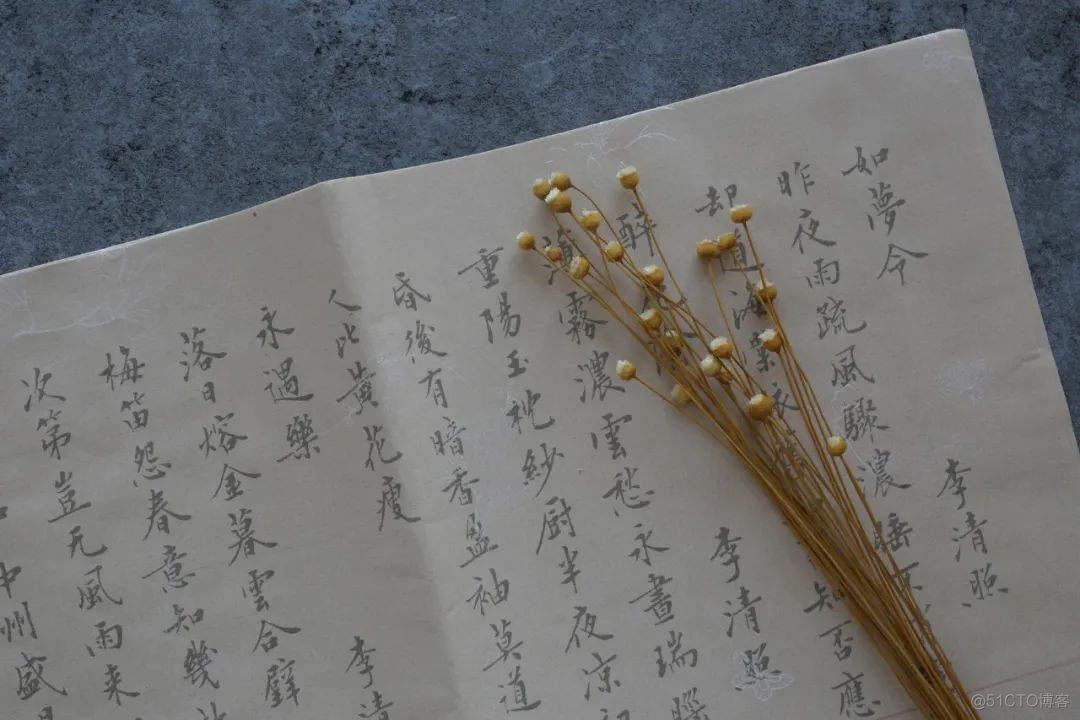 如夢令 李清照
昨夜雨疏風驟濃睡不
却道海棠依舊知否應
醉花陰 李清照
薄霧濃雲愁永晝瑞腦
重陽玉枕紗厨半夜凉初
昏後有暗香盈袖莫道
人比黃花瘦
永遇樂 李清
落日熔金暮雲合璧
梅笛怨春意知幾
次第豈无風雨来
中州盛日
@51CTO博客